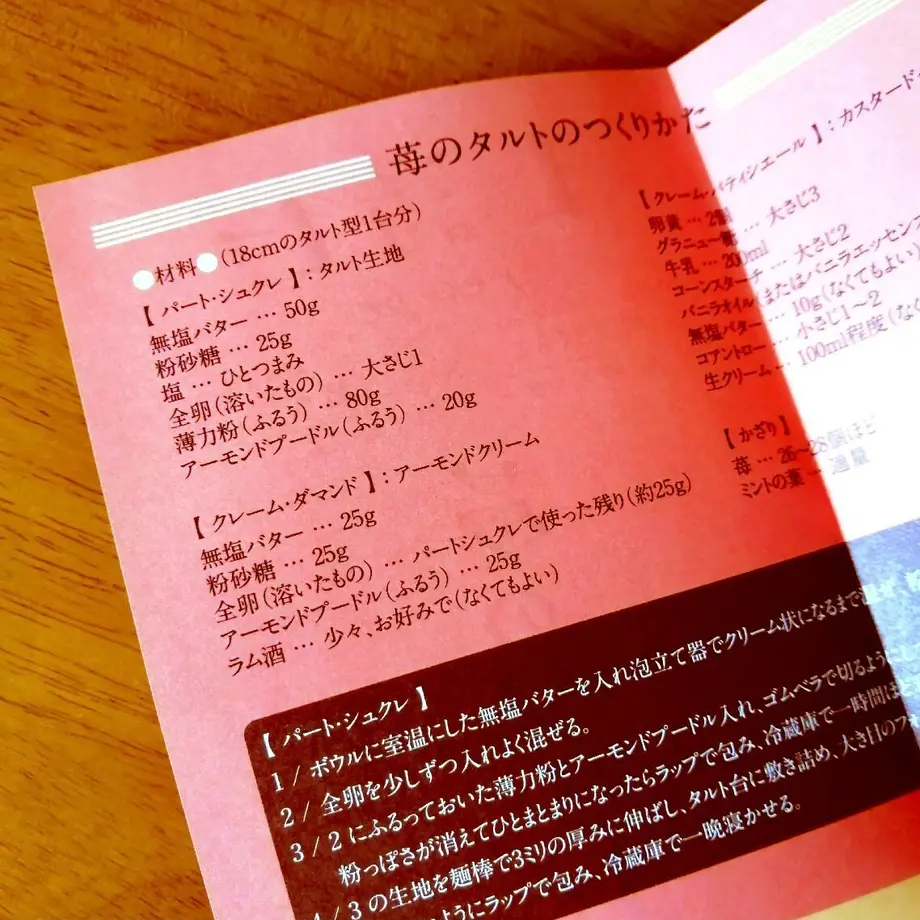 苺のタルトのつくりかた
●材料●(18cmのタルト型1台分)
【 パート・シュクレ 】:タルト生地
無塩バター … 50g
粉砂糖 … 25g
塩 … ひとつまみ
全卵(溶いたもの) … 大さじ1
薄力粉(ふるう) … 80g
アーモンドプードル(ふるう) … 20g
【 クレーム・ダマンド 】:アーモンドクリーム
無塩バター … 25g
粉砂糖 … 25g
全卵(溶いたもの) … パートシュクレで使った残り(約25g)
アーモンドプードル(ふるう) … 25g
ラム酒 … 少々、お好みで(なくてもよい)
【 クレーム・パティシエール 】:カスタード
卵黄 … 2個
グラニュー糖 … 大さじ3
牛乳 … 200ml
コーンスターチ … 大さじ2
バニラオイル(またはバニラエッセンス
無塩バター … 10g(なくてもよい)
コアントロー … 小さじ1~2
生クリーム … 100ml程度(なく
【 かざり 】
苺 … 26~28個ほど
ミントの葉 … 適量
【 パート・シュクレ 】
1 / ボウルに室温にした無塩バターを入れ泡立て器でクリーム状になるまで
2 / 全卵を少しずつ入れよく混ぜる。
3 / 2にふるっておいた薄力粉とアーモンドプードル入れ、ゴムベラで切るよう
粉っぽさが消えてひとまとまりになったらラップで包み、冷蔵庫で一時間ほど
4 / 3の生地を麺棒で3ミリの厚みに伸ばし、タルト台に敷き詰め、大き目のフ
ようにラップで包み、冷蔵庫で一晩寝かせる。